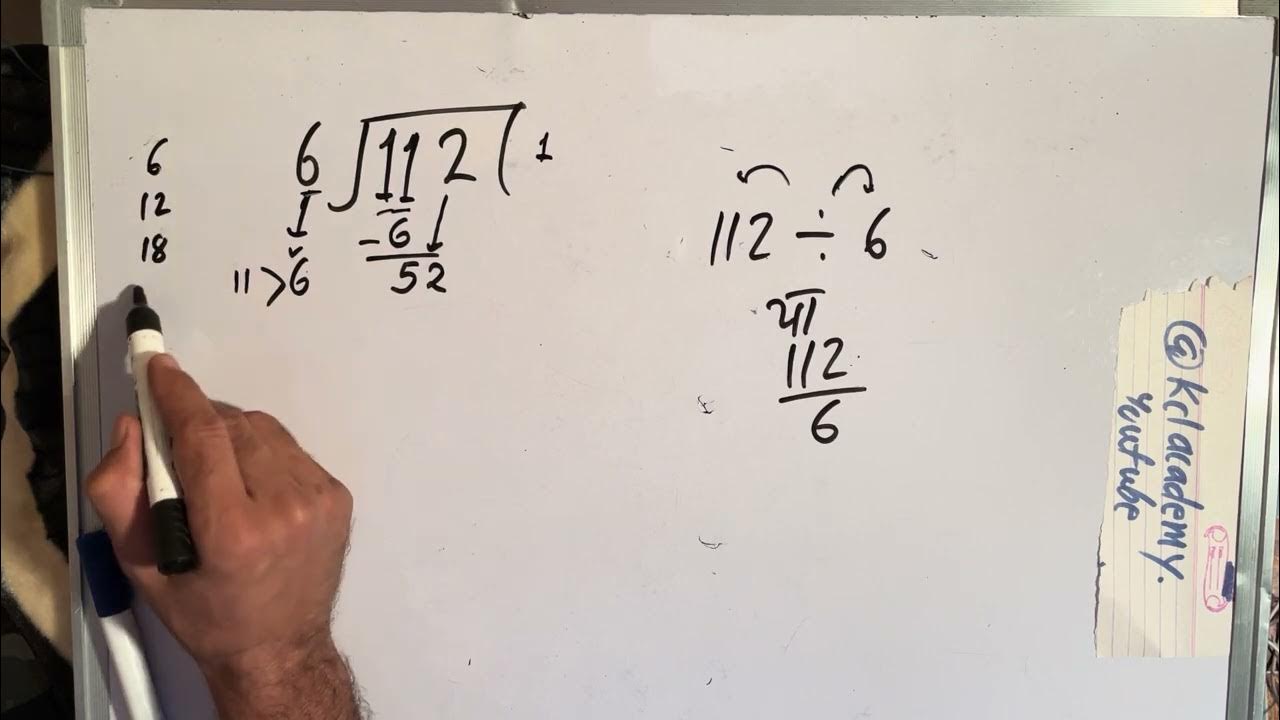 6
12
18
6 ) 112 ( 1
- 6
52
11 > 6
112 ÷ 6
या
112
6
@Krlacademy.
Youtube